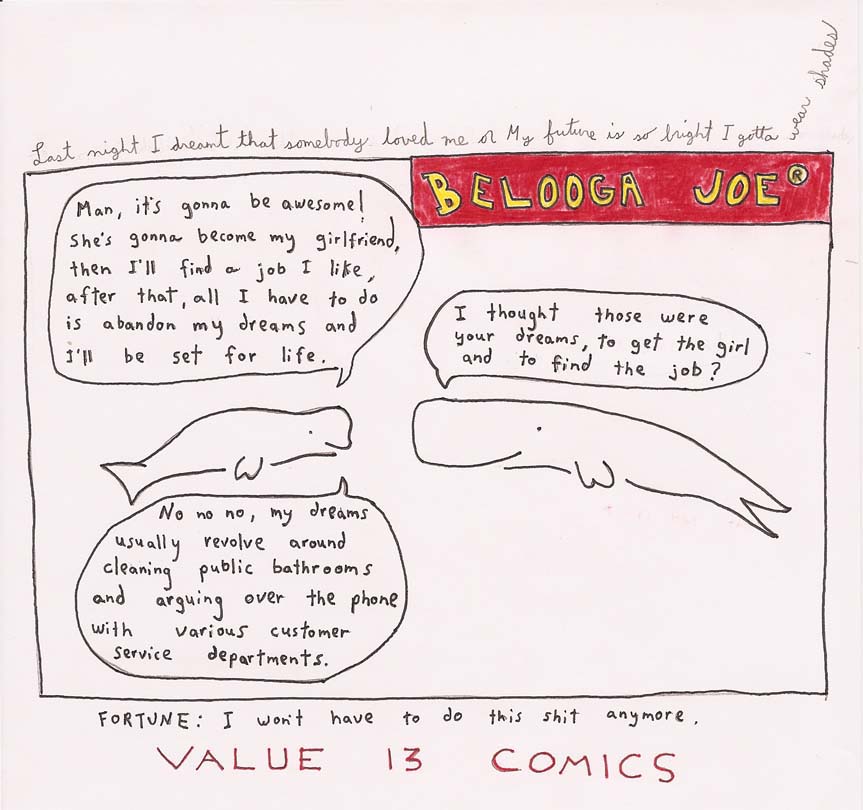 Last night I dreamt that somebody loved me or My future is so bright I gotta wear shades
BELOOGA JOE®
Man, it's gonna be awesome!
She's gonna become my girlfriend,
then I'll find a job I like,
after that, all I have to do
is abandon my dreams and
I'll be set for life.
I thought those were
your dreams, to get the girl
and to find the job?
No no no, my dreams
usually revolve around
cleaning public bathrooms
and arguing over the phone
with various customer
service departments.
FORTUNE: I won't have to do this shit anymore.
VALUE 13 COMICS